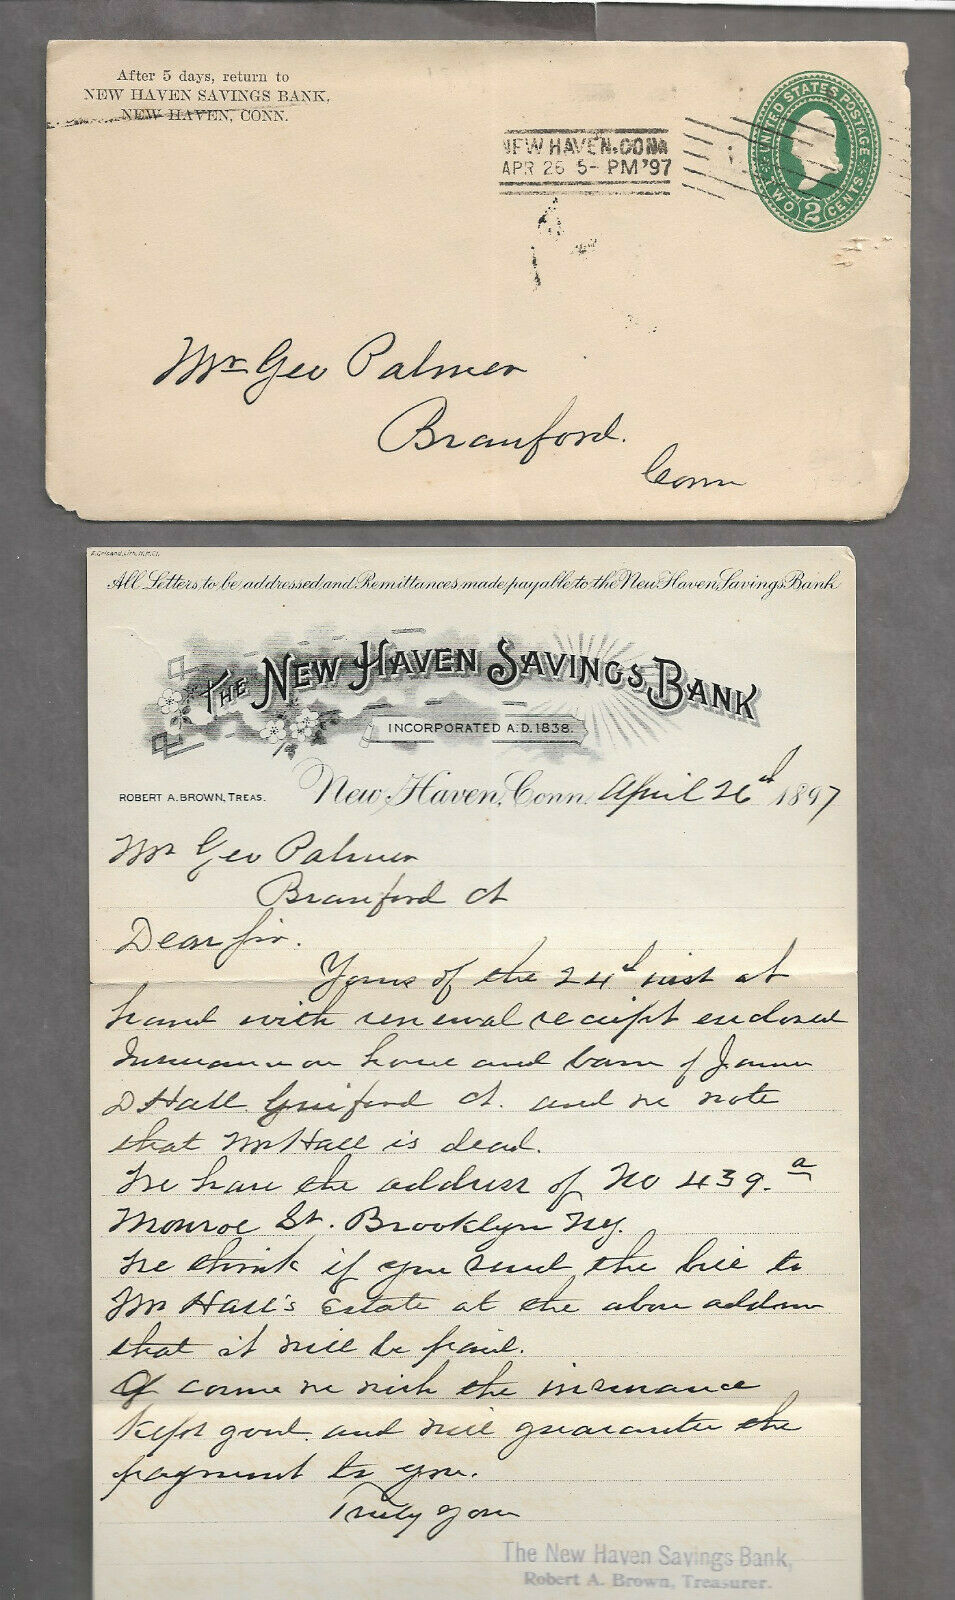 After 5 days, return to
NEW HAVEN SAVINGS BANK,
NEW HAVEN, CONN.
NEW HAVEN. CONN
APR 26 5- PM '97
UNITED STATES POSTAGE
TWO 2 CENTS
Mr Geo Palmer
Branford.
Conn
All Letters to be addressed and Remittances made payable to the New Haven Savings Bank
THE NEW HAVEN SAVINGS BANK
INCORPORATED A.D. 1838.
ROBERT A. BROWN, TREAS. New Haven, Conn. April 26th 1897
Mr Geo Palmer
Branford Ct
Dear Sir.
Yours of the 24th inst at
hand with renewal receipt enclosed
Insurance on house and barn of James
D Hall Guilford Ct. and we note
that Mr Hall is dead.
We have the address of No 439.a
Monroe St. Brooklyn NY.
We think if you send the bill to
Mr Hall's Estate at the above address
that it will be paid.
Of course we wish the insurance
kept good and will guarantee the
payment to you.
Truly yours
The New Haven Savings Bank,
Robert A. Brown, Treasurer.